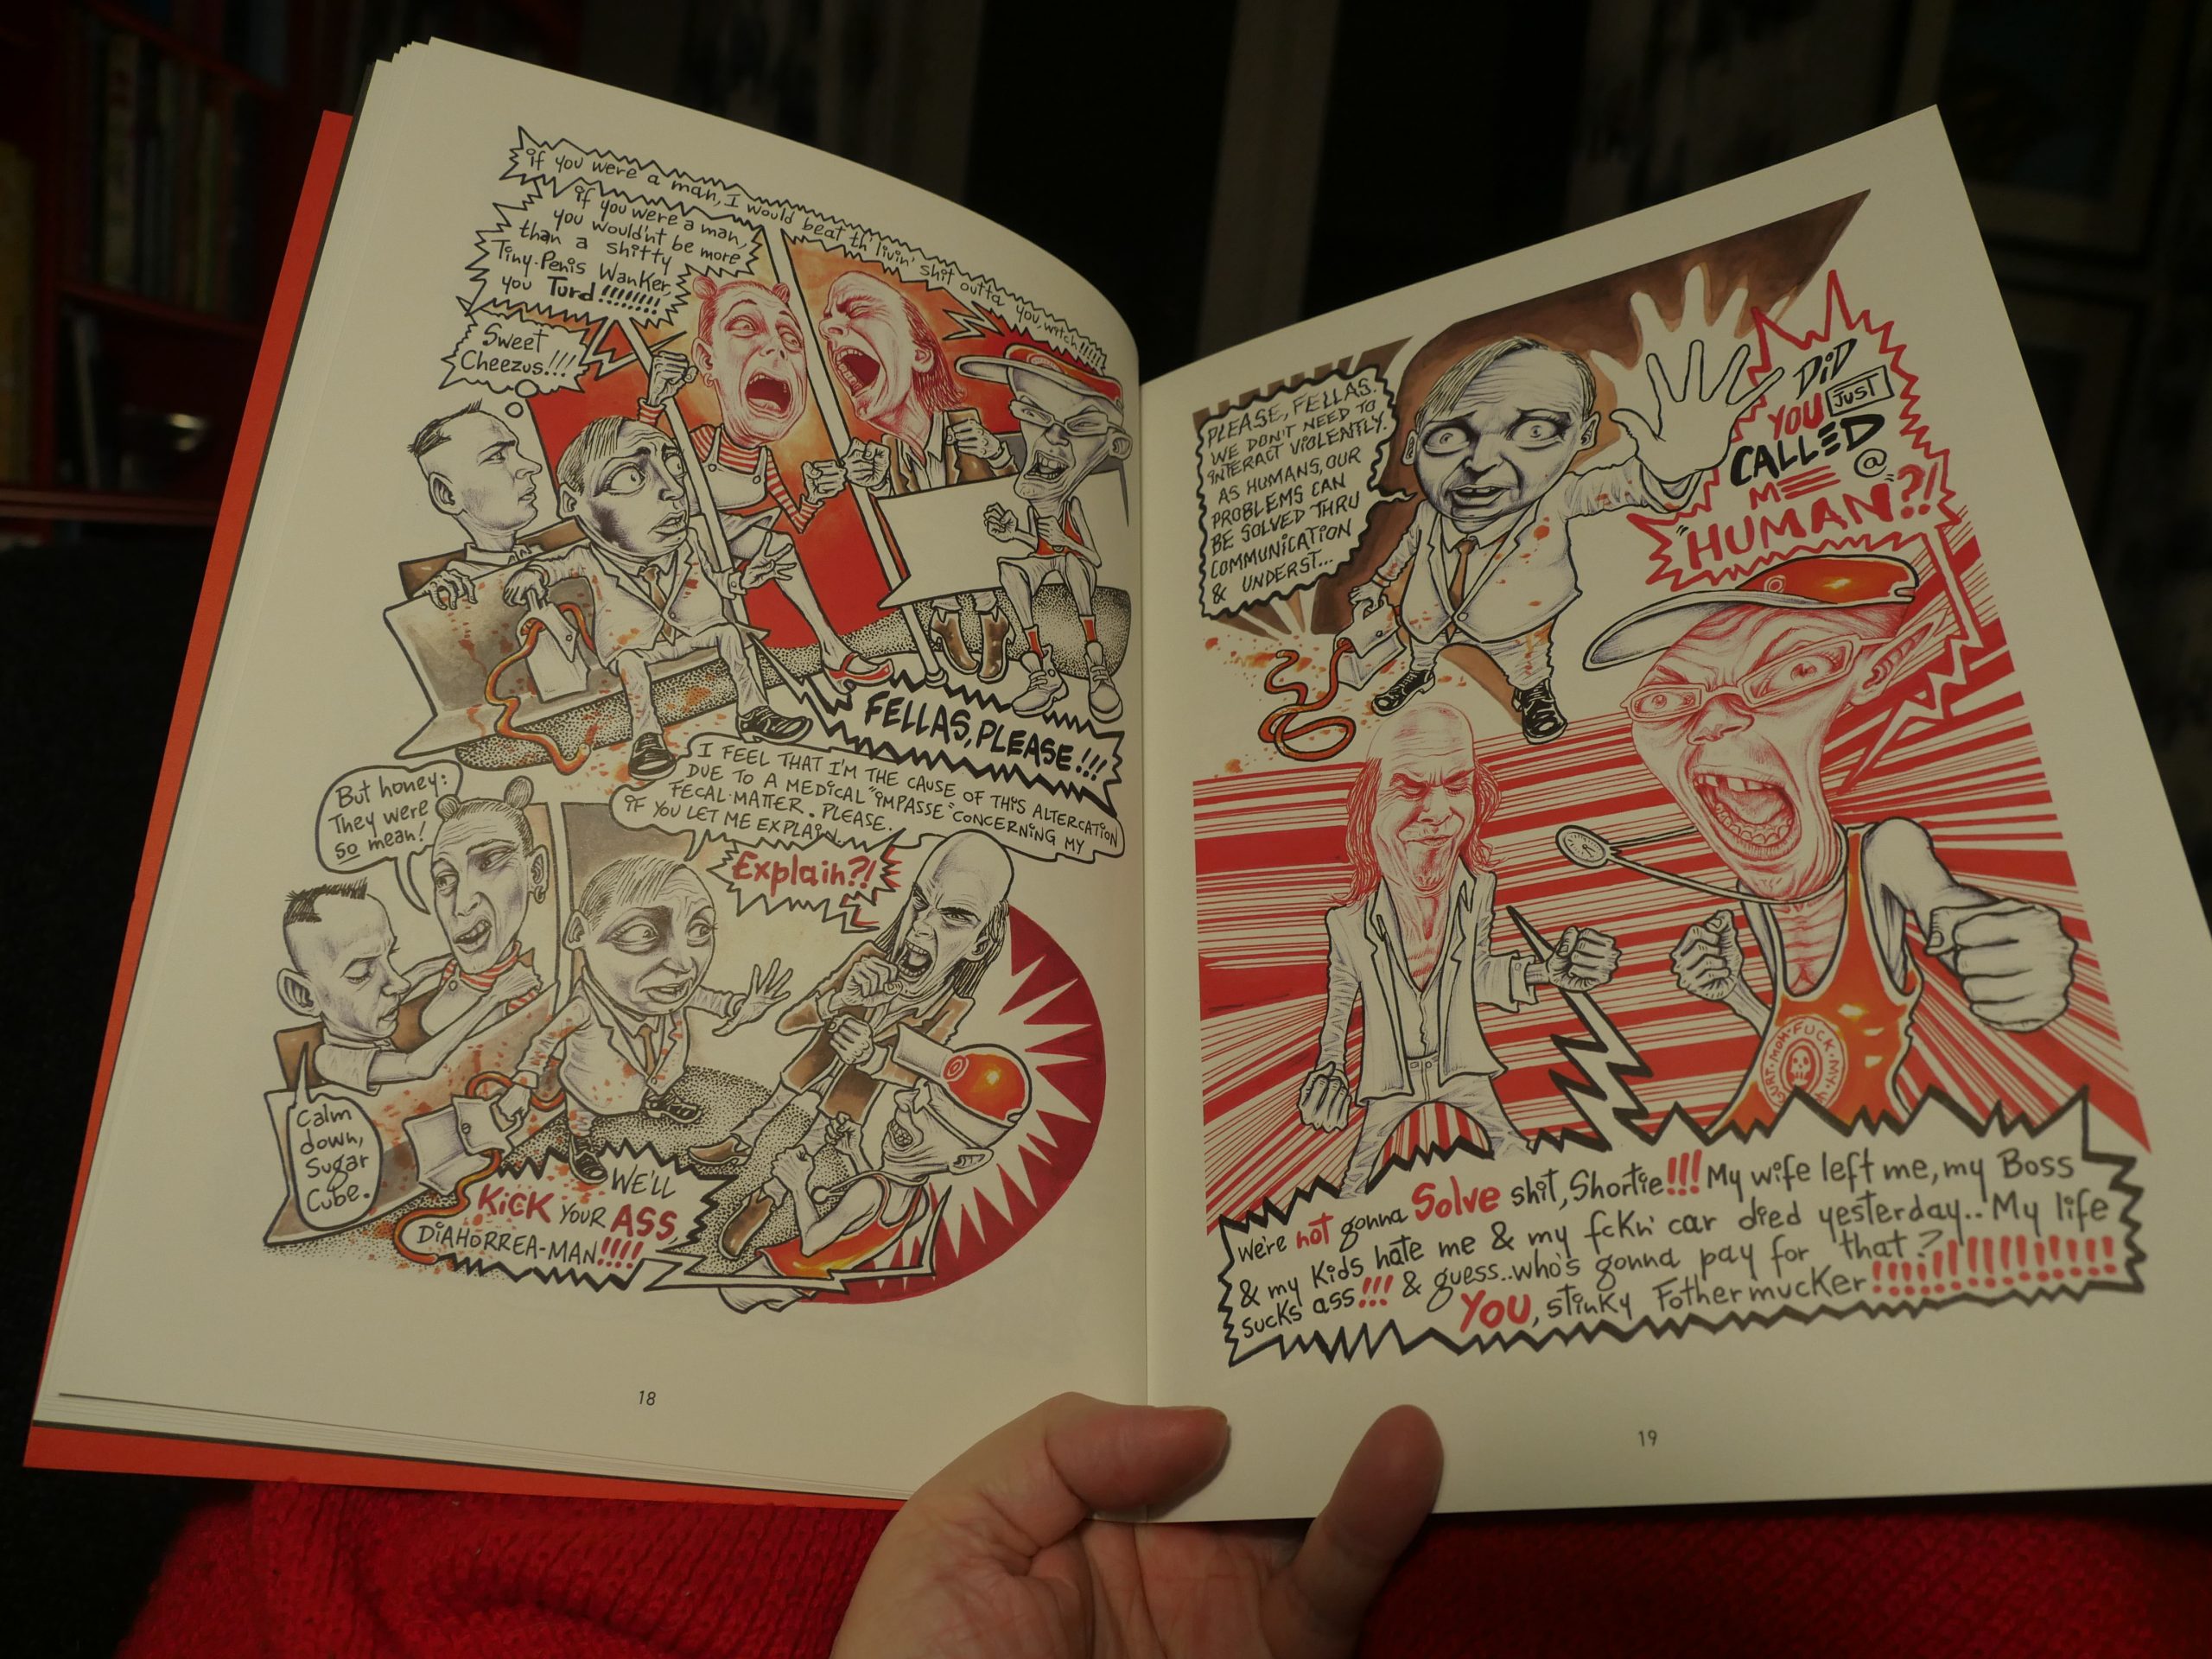 if you were a man, I would beat th' livin' shit outta you, witch!!!!!
if you were a man,
you would'nt be more
than a shitty
Tiny-Penis WanKer,
you Turd!!!!!!!!
Sweet
Cheezus!!!
FELLAS, PLEASE!!!
But honey:
They were
so mean!
I FEEL THAT I'M THE CAUSE OF THIS ALTERCATION
DUE TO A MEDICAL "IMPASSE" CONCERNING MY
FECAL-MATTER. PLEASE.
IF YOU LET ME EXPLAIN..
Explain?!
Calm
down,
Sugar
Cube.
WE'LL
KiCK YOUR ASS,
DiAHORREA-MAN!!!!
18
PLEASE, FELLAS.
WE DON'T NEED TO
INTERACT VIOLENTLY.
AS HUMANS, OUR
PROBLEMS CAN
BE SOLVED THRU
COMMUNICATION
& UNDERST...
DiD
YOU JUST
CALLED
ME @
"HUMAN"?!
MOH•FUCK•MY
YURT
We're not gonna Solve shit, Shortie!!! My wife left me, my Boss
& my Kids hate me & my fcKn' car died yesterday.. My life
sucks ass!!! & guess..who's gonna pay for that?!!!!!!!!!!!!!
YOU, stinky Fothermucker
19